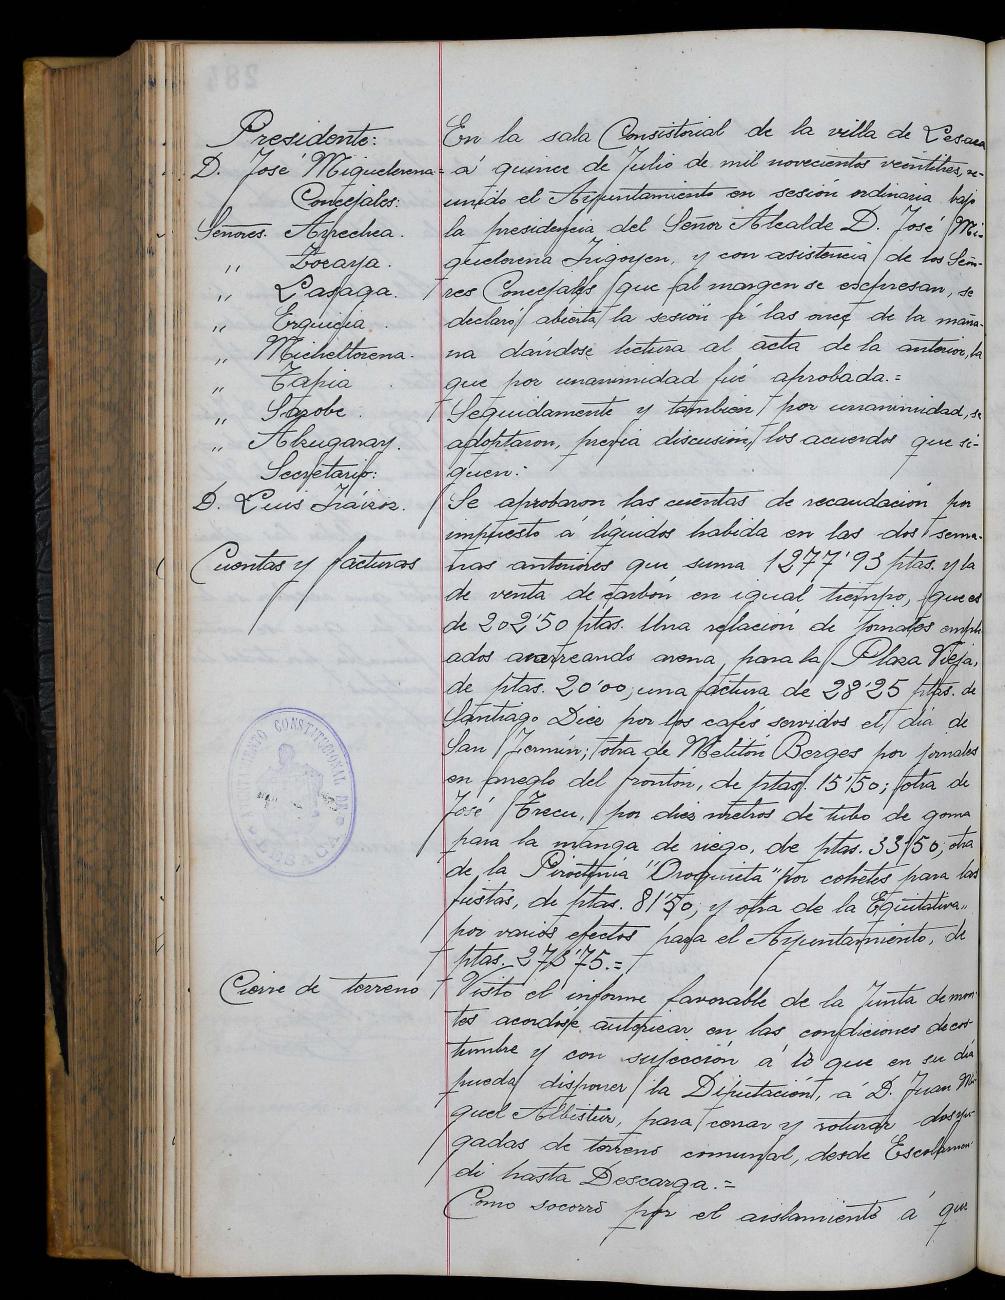 Presidente:
D. José Miguelerena=
Concejales:
Señores. Arrechea.
,, Zocaya.
,, Lasaga.
,, Erquicia.
,, Micheltorena.
,, Tapia.
,, Sarobe.
,, Alzugaray.
Secretario:
D. Luis Iráizoz.
Cuentas y facturas
AYUNTAMIENTO CONSTITUCIONAL DE LESACA
Cierre de terreno
En la sala Consistorial de la villa de Lesaca
á quince de Julio de mil novecientos veintitres, re-
unido el Ayuntamiento en sesión ordinaria bajo
la presidencia del Señor Alcalde D. José Mi-
guelerena Irigoyen, y con asistencia de los Seño-
res Concejales que al margen se expresan, se
declaró abierta la sesión á las once de la maña-
na dándose lectura al acta de la anterior, la
que por unanimidad fué aprobada.=
Seguidamente y también por unanimidad, se
adoptaron, previa discusión, los acuerdos que si-
guen:
Se aprobaron las cuentas de recaudación por
impuesto á líquidos habida en las dos sema-
nas anteriores que suma 1277'93 ptas. y la
de venta de carbón en igual tiempo, que es
de 202'50 ptas. Una relación de jornales emple
ados acarreando arena, para la Plaza Vieja,
de ptas. 20'00; una factura de 28'25 ptas. de
Santiago Dice por los cafés servidos el día de
San Fermín; otra de Melitón Berges por jornales
en arreglo del frontón, de ptas. 15'50; otra de
José Trecu, por diez metros de tubo de goma
para la manga de riego, de ptas. 33'50; otra
de la Pirotecnia "Oroquieta" por cohetes para las
fiestas, de ptas. 81'50; y otra de la Equitativa„
por varios efectos para el Ayuntamiento, de
ptas. 273'75.=
Visto el informe favorable de la Junta de mon-
tes acordóse autorizar en las condiciones de cos-
tumbre y con sujección á lo que en su día
pueda disponer la Diputación, á D. Juan Mi-
guel Albistur, para cerrar y roturar dos yu-
gadas de terreno comunal, desde Escolamen-
di hasta Descarga.=
Como socorro por el aislamiento á que